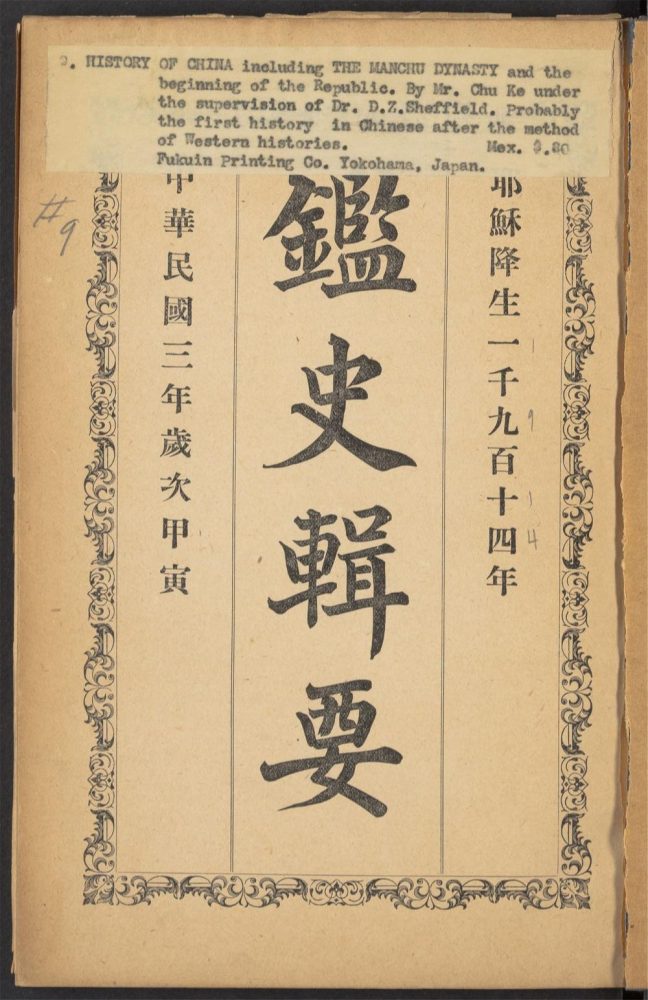 9. HISTORY OF CHINA including THE MANCHU DYNASTY and the
beginning of the Republic. By Mr. Chu Ke under
the supervision of Dr. D.Z.Sheffield. Probably
the first history in Chinese after the method
of Western histories. Mex. $.80
Fukuin Printing Co. Yokohama, Japan.
#9
耶穌降生一千九百十四年
1914
鑑史輯要
中華民國三年歲次甲寅